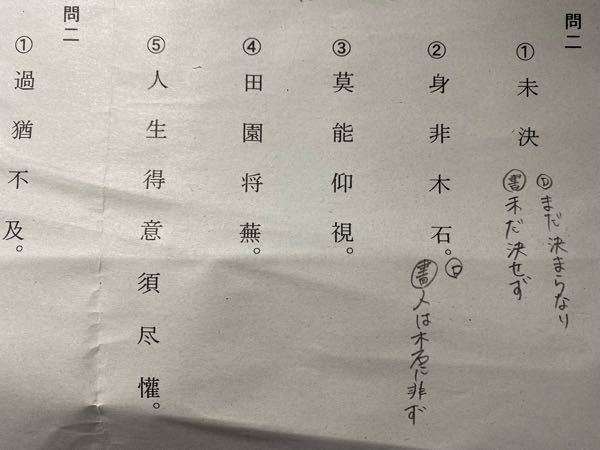 問二
① 未決
㋺ まだ決まらなり
㊂書 未だ決せず
② 身非木石。
㋺
書 人は木石に非ず
③ 莫能仰視。
④ 田園将蕪。
⑤ 人生得意須尽懽。
問二
① 過猶不及。